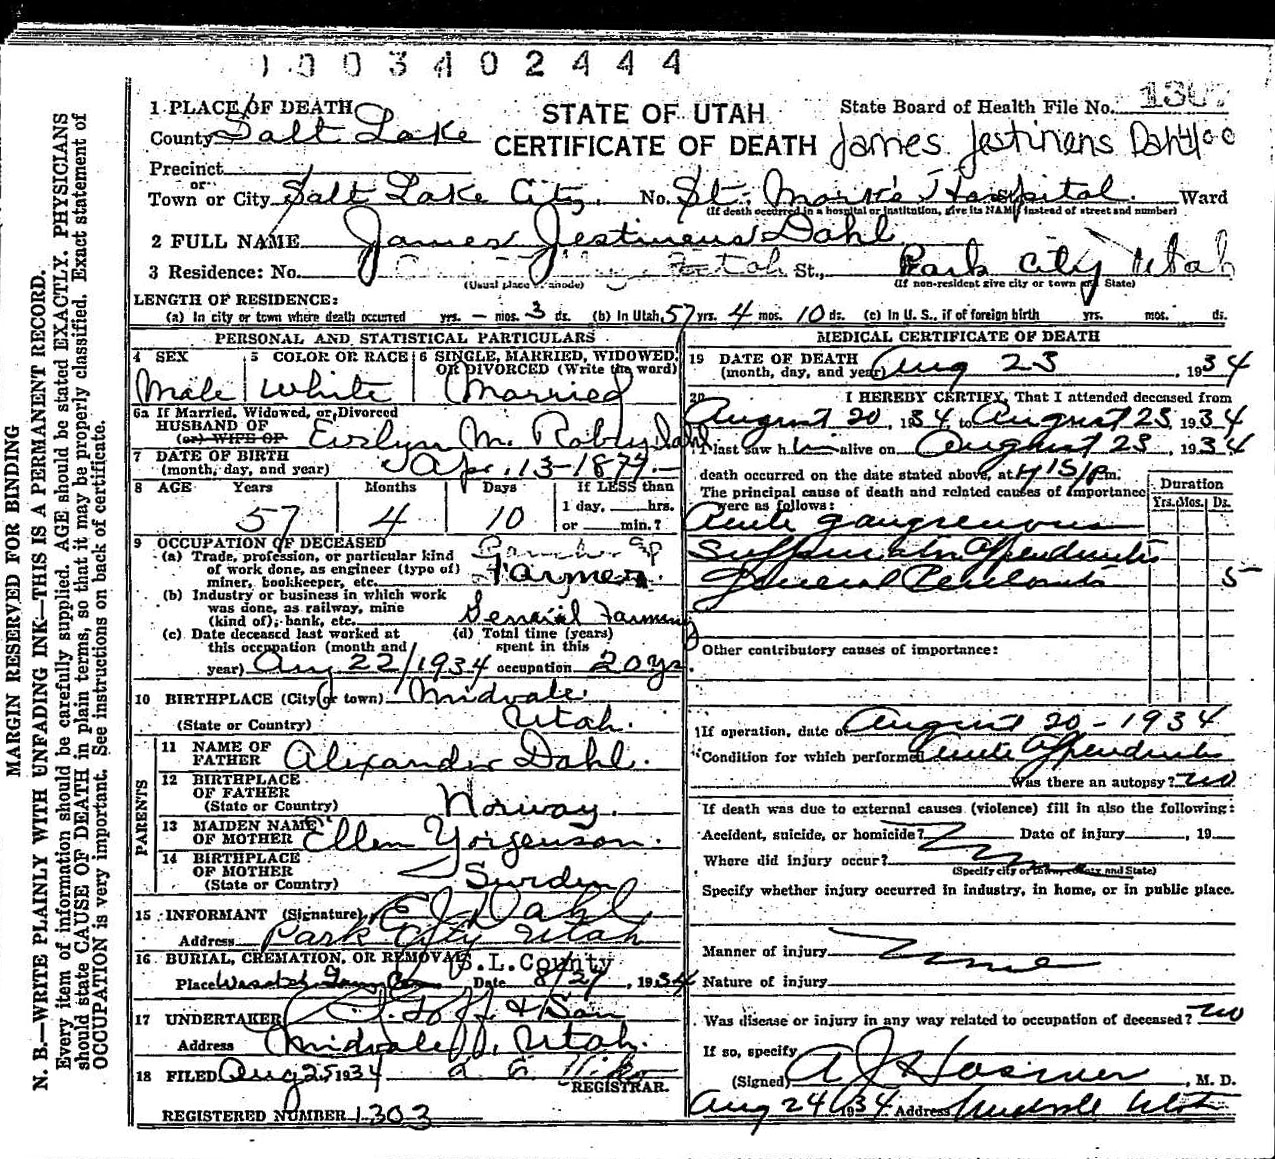 1003402444
1 PLACE OF DEATH
County Salt Lake
Precinct
or
Town or City Salt Lake City. No. St. Mark's Hospital. Ward
(If death occurred in a hospital or institution, give its NAME instead of street and number)
STATE OF UTAH
CERTIFICATE OF DEATH
State Board of Health File No.
James Jestinens Dahl
2 FULL NAME James Jestineus Dahl
3 Residence: No. Utah St., Park City Utah
(Usual place of abode) (If non-resident give city or town and State)
LENGTH OF RESIDENCE:
(a) In city or town where death occurred yrs. - mos. 3 ds. (b) In Utah 57 yrs. 4 mos. 10 ds. (c) In U. S., if of foreign birth yrs. mos. ds.
PERSONAL AND STATISTICAL PARTICULARS
4 SEX 5 COLOR OR RACE 6 SINGLE, MARRIED, WIDOWED, OR DIVORCED (Write the word)
Male White Married
6a If Married, Widowed, or Divorced
HUSBAND OF
(or) WIFE OF Evelyn M. Roby Dahl
7 DATE OF BIRTH
(month, day, and year) Apr. 13-1877
8 AGE Years Months Days If LESS than
57 4 10 1 day, hrs.
or min.?
9 OCCUPATION OF DECEASED
(a) Trade, profession, or particular kind
of work done, as engineer (type of)
miner, bookkeeper, etc. Farmer.
(b) Industry or business in which work
was done, as railway, mine
(kind of); bank, etc. General Farming
(c) Date deceased last worked at (d) Total time (years)
this occupation (month and spent in this
year) Aug 22/1934 occupation 20 yrs.
10 BIRTHPLACE (City or town) Midvale.
(State or Country) Utah.
PARENTS
11 NAME OF
FATHER Alexander Dahl.
12 BIRTHPLACE
OF FATHER
(State or Country) Norway.
13 MAIDEN NAME
OF MOTHER Ellen Yorgenson.
14 BIRTHPLACE
OF MOTHER
(State or Country) Sweden
15 INFORMANT (Signature) E J Dahl
Address Park City Utah
16 BURIAL, CREMATION, OR REMOVAL S.L. County
Place Wasatch Lawn Cem Date 8/27, 1934
17 UNDERTAKER Goff & Son
Address Midvale, Utah.
18 FILED Aug 25 1934
REGISTRAR.
REGISTERED NUMBER 1303
MEDICAL CERTIFICATE OF DEATH
19 DATE OF DEATH
(month, day, and year) Aug 23, 1934
20 I HEREBY CERTIFY, That I attended deceased from
August 20, 1934 to August 23, 1934
I last saw him alive on August 23, 1934
death occurred on the date stated above, at 4 15/Pm.
The principal cause of death and related causes of importance
were as follows:
Duration
Yrs. Mos. Ds.
Acute gangrenous
Suppurative Appendicitis
General Peritonitis 5
Other contributory causes of importance:
If operation, date of August 20-1934
Condition for which performed Acute Appendicitis
Was there an autopsy? no
If death was due to external causes (violence) fill in also the following:
Accident, suicide, or homicide? Date of injury, 19
Where did injury occur?
(Specify city or town, county and State)
Specify whether injury occurred in industry, in home, or in public place.
Manner of injury
Nature of injury
Was disease or injury in any way related to occupation of deceased? no
If so, specify
(Signed) A J Hosmer, M. D.
Aug 24 1934 Address Midvale Utah
MARGIN RESERVED FOR BINDING
N. B.—WRITE PLAINLY WITH UNFADING INK—THIS IS A PERMANENT RECORD.
Every item of information should be carefully supplied. AGE should be stated EXACTLY. PHYSICIANS
should state CAUSE OF DEATH in plain terms, so that it may be properly classified. Exact statement of
OCCUPATION is very important. See instructions on back of certificate.